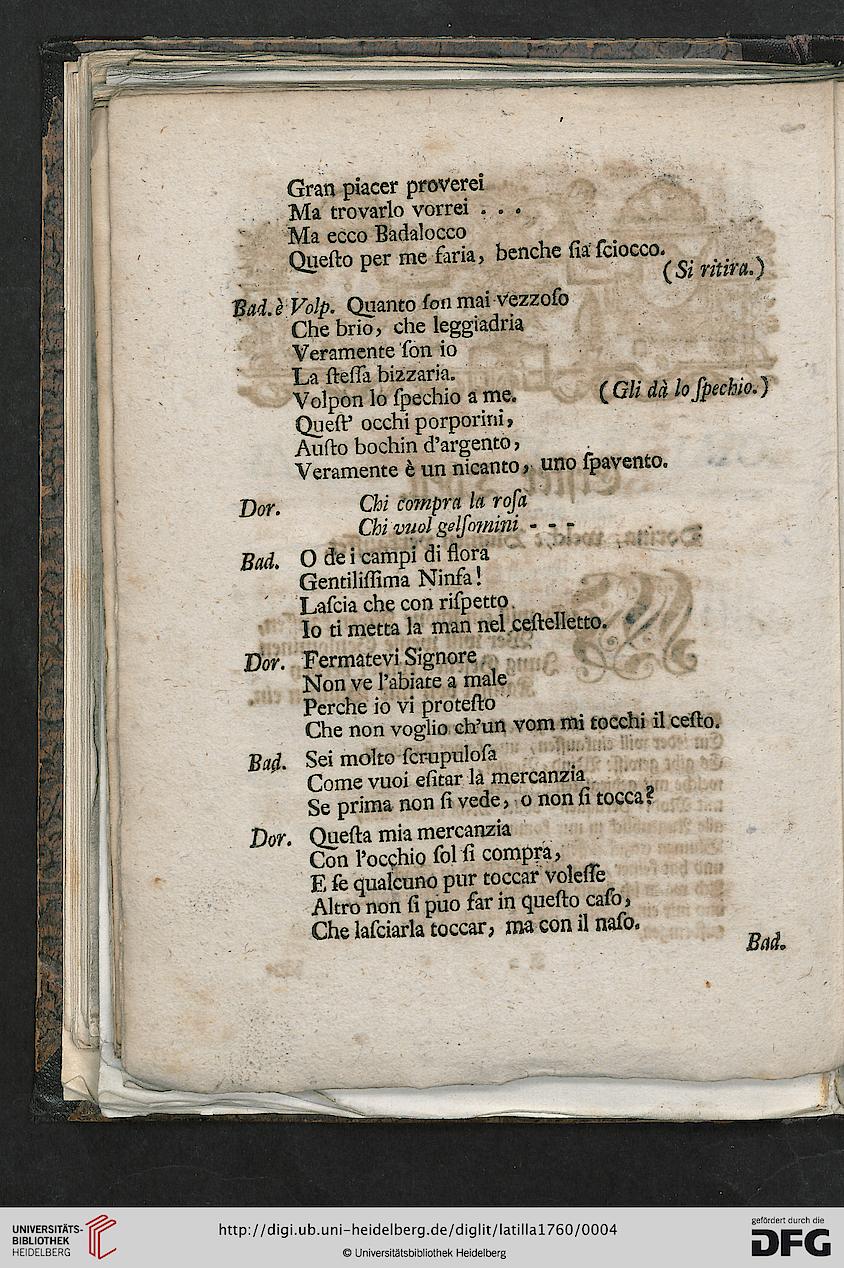 Gran piacer proverei
Ma trovarlo vorrei . . .
Ma ecco Badalocco
Queſto per me faria, benche ſia ſciocco.
(Si ritira.)
Bad. è Volp. Quanto ſon mai vezzoſo
Che brio, che leggiadria
Veramente ſon io
La ſteſſa bizzaria.
Volpon lo ſpechio a me. (Gli dà lo ſpechio.)
Queſt' occhi porporini,
Auſto bochin d'argento,
Veramente è un nicanto, uno ſpavento.
Dor. Chi compra la roſa
Chi vuol gelſomini - - -
Bad. O de i campi di flora
Gentiliſſima Ninfa!
Laſcia che con riſpetto
Io ti metta la man nel ceſtelletto.
Dor. Fermatevi Signore
Non ve l'abiate a male
Perche io vi proteſto
Che non voglio ch'un vom mi tocchi il ceſto.
Bad. Sei molto ſcrupuloſa
Come vuoi eſitar la mercanzia
Se prima non ſi vede, o non ſi tocca?
Dor. Queſta mia mercanzia
Con l'occhio ſol ſi compra,
E ſe qualcuno pur toccar voleſſe
Altro non ſi puo far in queſto caſo,
Che laſciarla toccar, ma con il naſo.
Bad.
UNIVERSITÄTS-
BIBLIOTHEK
HEIDELBERG
http://digi.ub.uni-heidelberg.de/diglit/latilla1760/0004
© Universitätsbibliothek Heidelberg
gefördert durch die
DFG